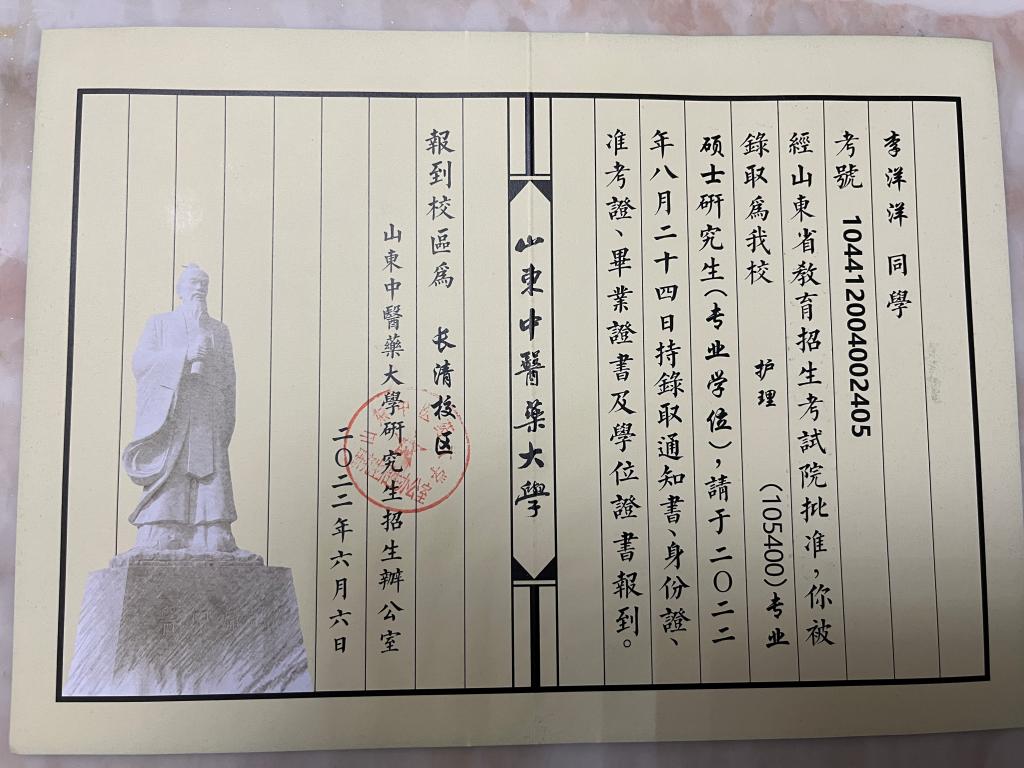 李洋洋 同學
考號 104412004002405
經山東省教育招生考試院批准，你被
錄取爲我校 护理 （105400）专业
硕士研究生（专业学位），請于二〇二二
年八月二十四日持錄取通知書、身份證、
准考證、畢業證書及學位證書報到。
山東中醫藥大學
報到校區爲 长清校区
山東中醫藥大學研究生招生辦公室
二〇二二年六月六日